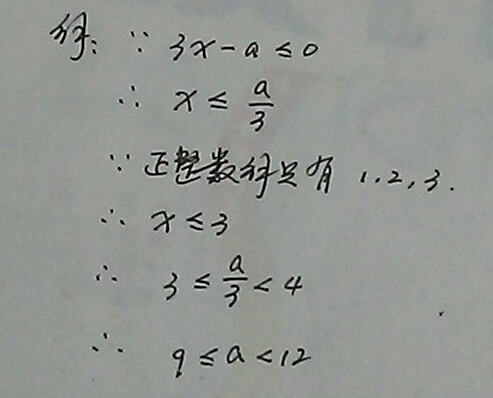 解: ∵ 3x-a≤0
∴ x≤a/3
∵ 正整数解只有 1,2,3.
∴ x≤3
∴ 3≤a/3<4
∴ 9≤a<12